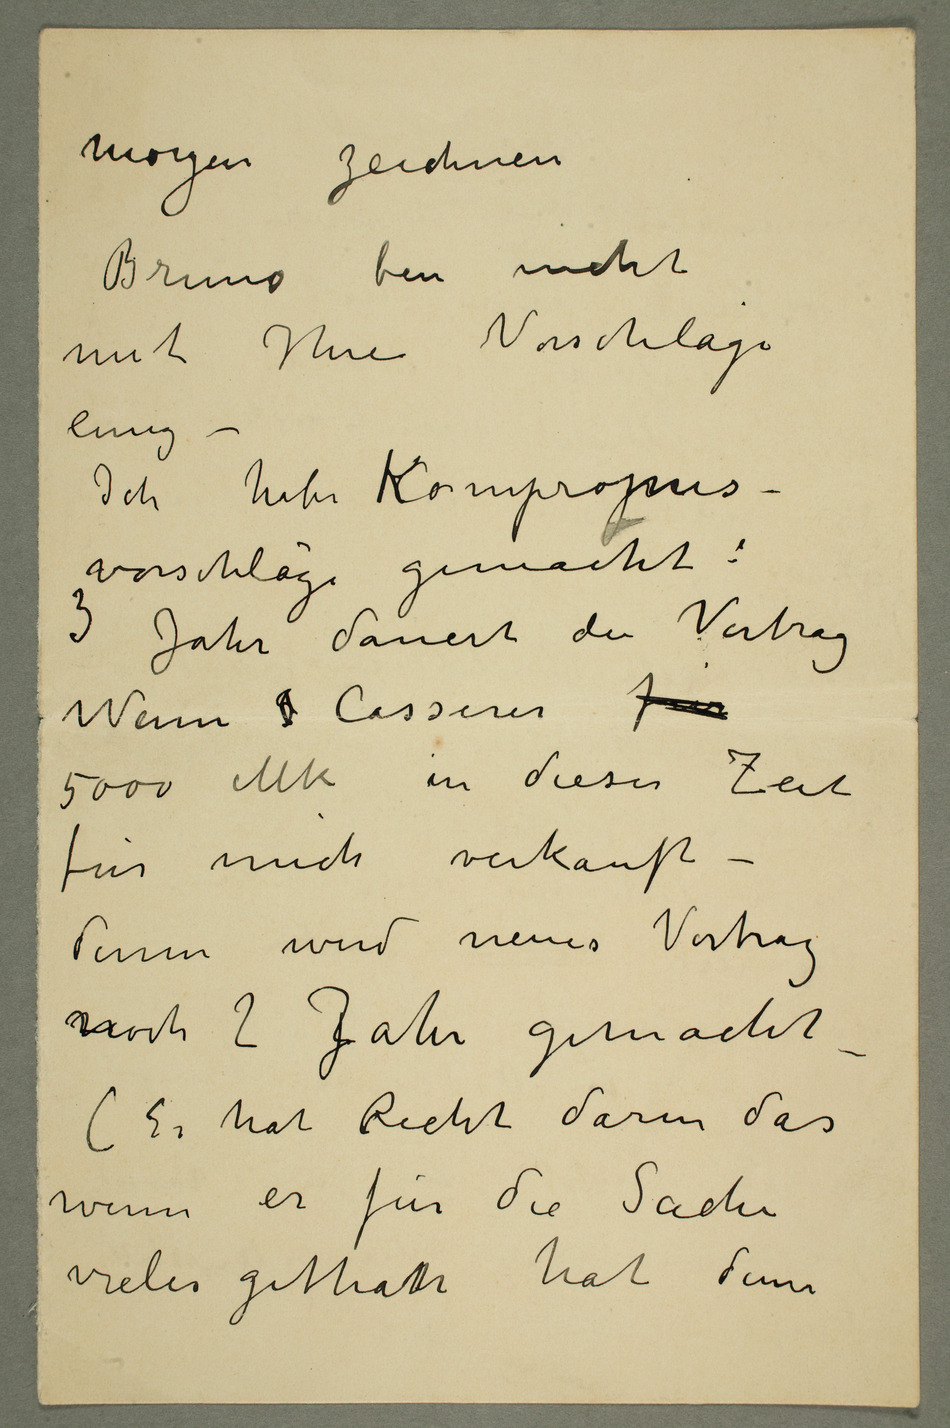 morgen zeichnen
Bruno ben nicht
mit Ihre Vorschläge
einig –
Ich habe Kompromis-
vorschläge gemacht:
3 Jahr dauert die Vertrag
Wenn Casserer für
5000 Mk in dieser Zeit
für mich verkauft –
denn wird neues Vertrag
noch 2 Jahr gemacht –
( Er hat Recht darin das
wenn er für die Sache
vieles gethan hat denn